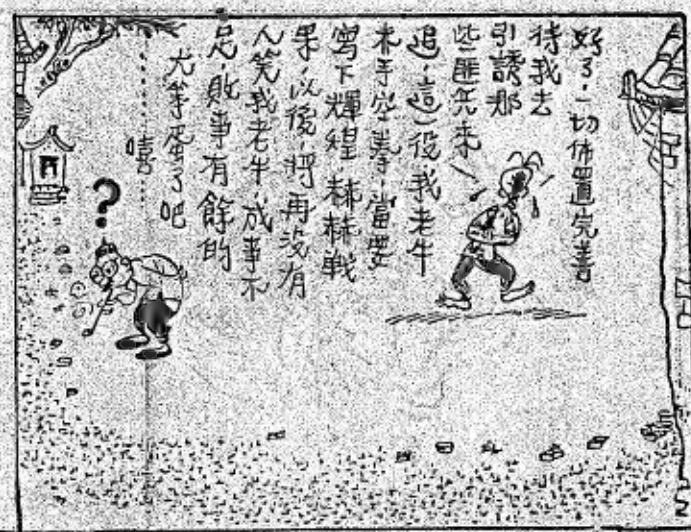 好了,一切佈置完善
待我去
引誘那
些匪兇来
追,這一役我老牛
赤手空拳,當要
寫下輝煌 赫赫戦
果,以後,将再沒有
人笑我老牛成事不
足,敗事有餘的
大笨蛋了吧
嘻
?